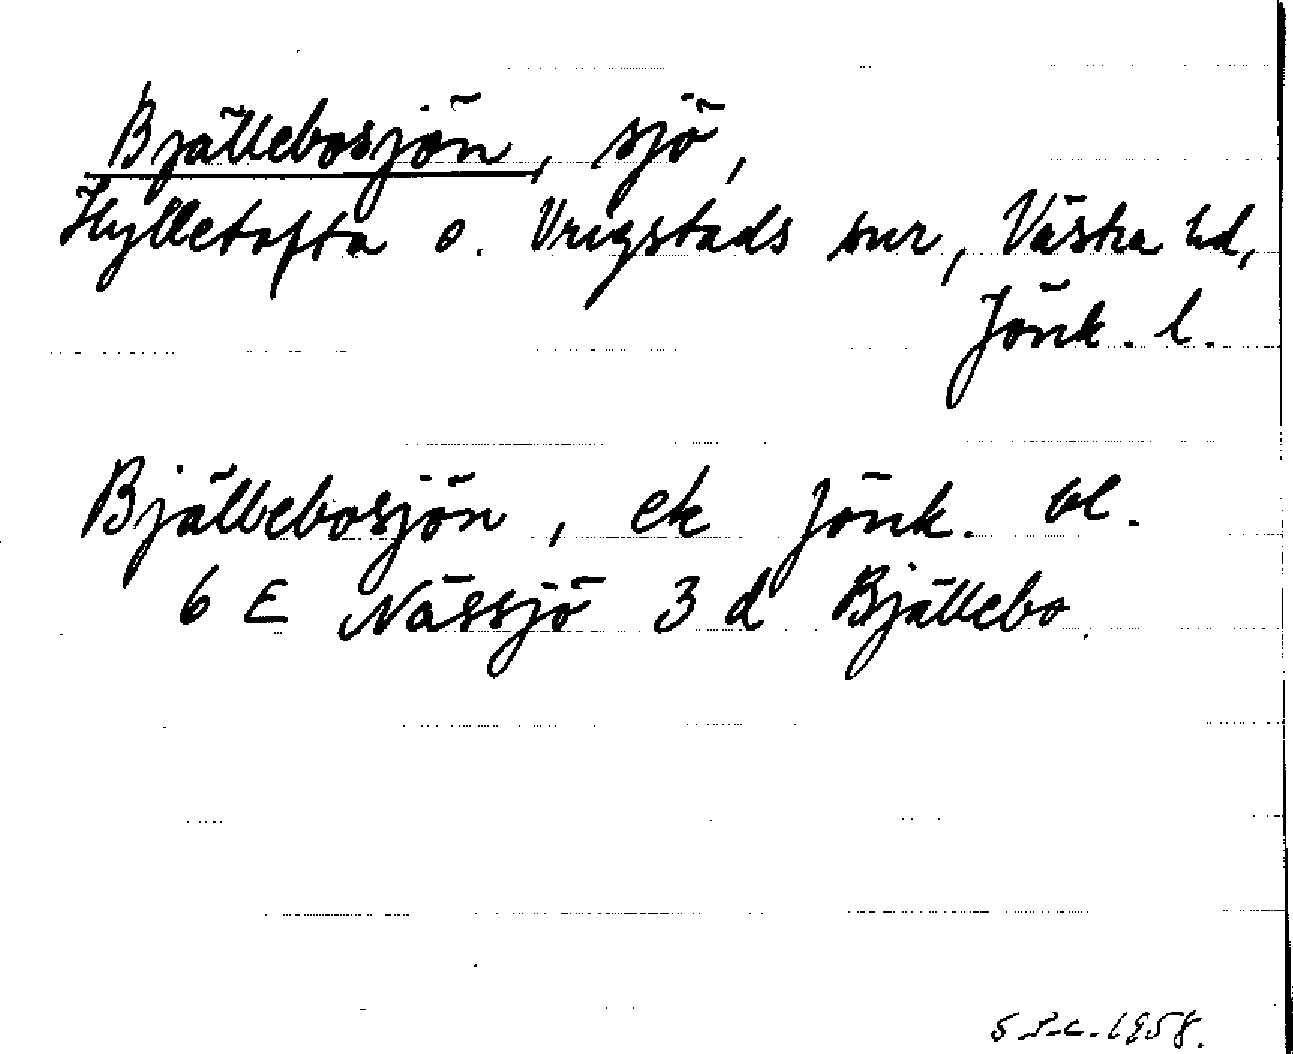 Bjällebosjön, sjö,
Hylletofta o. Vrigstads snr, Västra hd,
Jönk. l.
Bjällebosjön, ek Jönk. bl.
6 E Nässjö 3 d Bjällebo
1958.